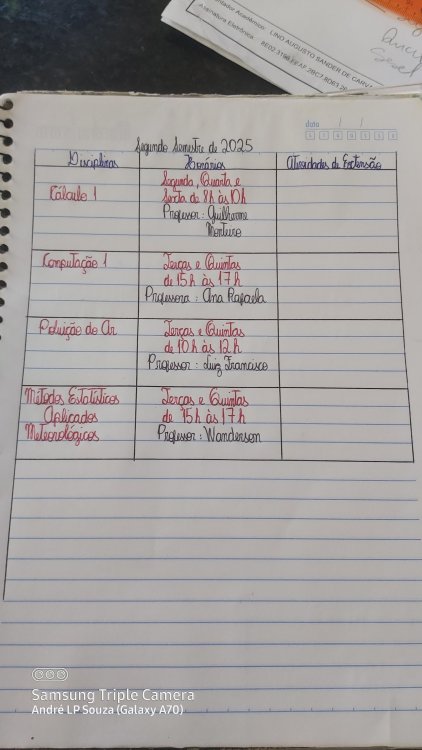 Orientador Acadêmico: LINO AUGUSTO SANDER DE CARVA
Assinatura Eletrônica:
data / /
Segundo Semestre de 2025
Disciplinas Horários Atividades de Extensão
Cálculo 1
Segunda, Quarta e
Sexta de 8h às 10h
Professor: Guilherme
Computação 1
Terças e Quintas
de 15h às 17h
Professora: Ana Rafaela
Poluição do Ar
Terças e Quintas
de 10h às 12h
Professor: Luiz Francisco
Métodos Estatísticos
Aplicados
Meteorológicos
Terças e Quintas
de 15h às 17h
Professor: Wanderson
Samsung Triple Camera
André LP Souza (Galaxy A70)